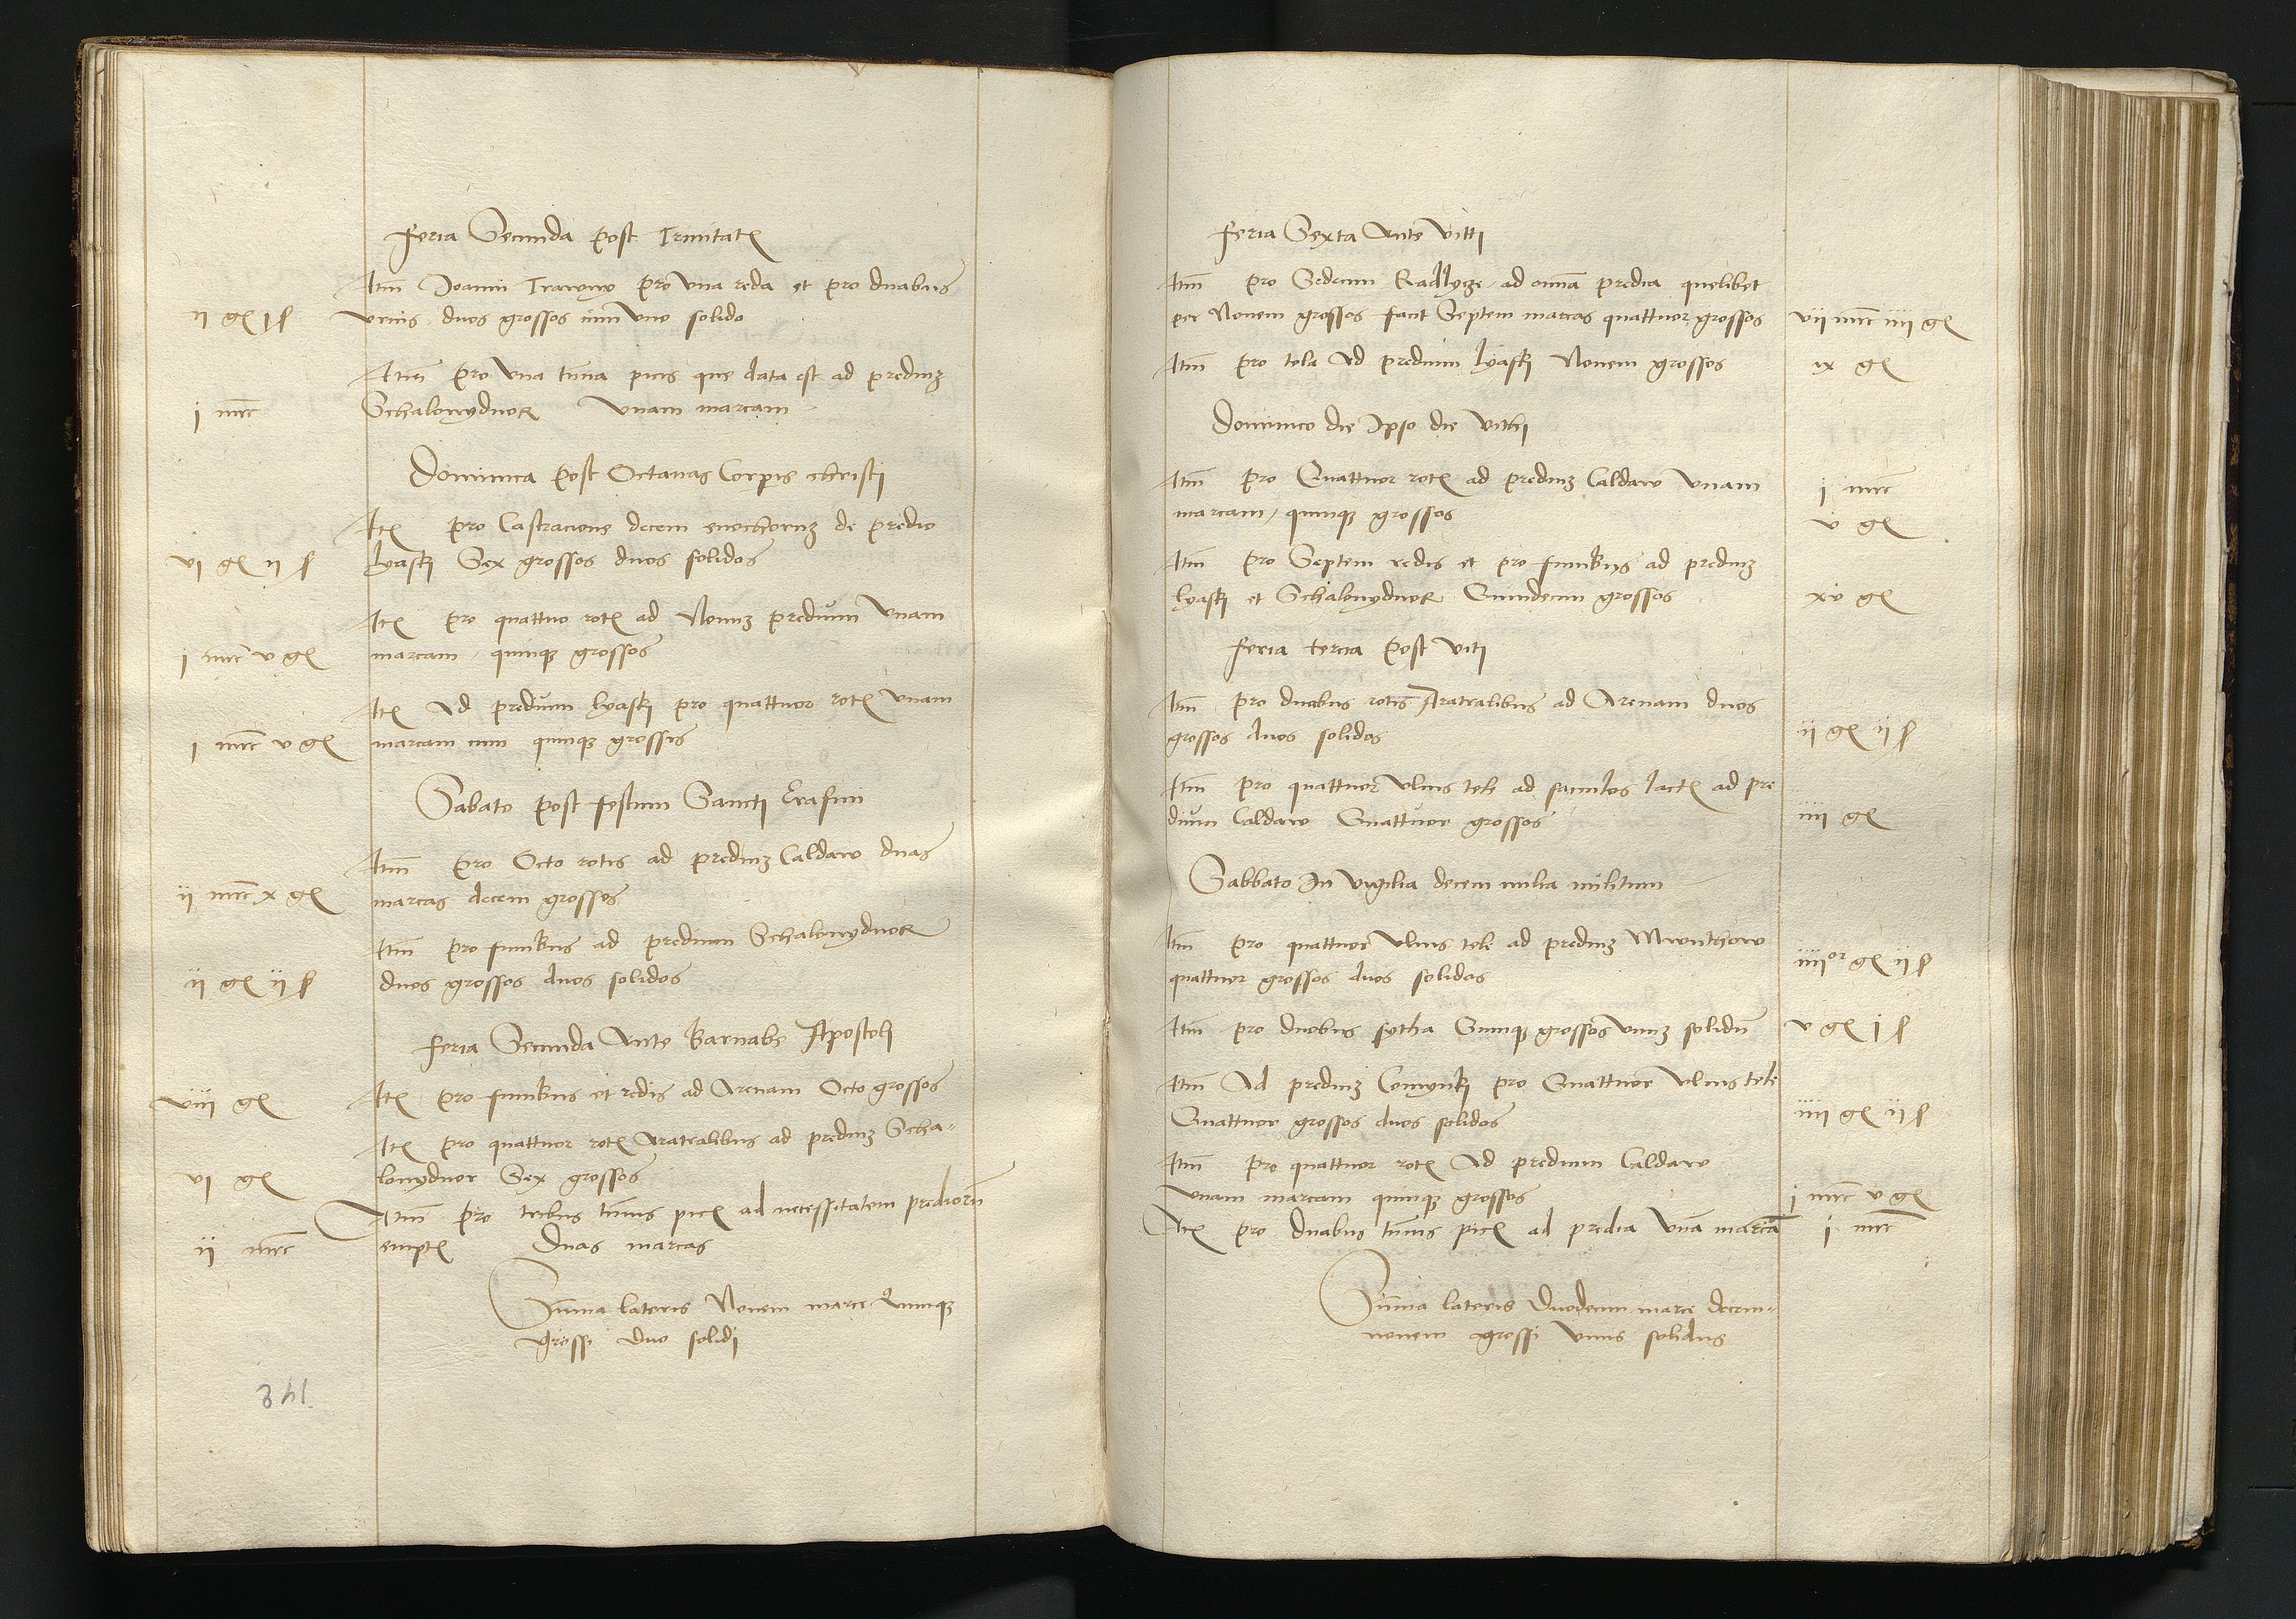 Feria Secunda post Trinitat[is]
Itm Joanni Trawny pro una reda et pro duabus
ii gs i s urnis duos grossos cum uno solido
Itm pro una tunna picis que data est ad prediuz
i mrc Schalonydwor unam marcam
Dominica post Octavas Corpis christi
Ite pro Castracione decem de predio
vi gs ii s lyaski Sex grossos duos solidos
Ite pro quattuo rote ad Novuz predium unam
i mrc v gs marcam quinqz grossos
Ite Ad predium lyaski pro quattuor rote unam
i mrc v gs marcam cum quinqz grossis
Sabato post festum Sancti Erasmi
Itm pro Octo rotis ad prediuz Caldaw duas
ii mrc x gs marcas decem grossos
Itm pro funibus ad predium Schalonydwor
ii gs ii s duos grossos duos solidos
Feria Secunda Ante Barnabe Apostoli
viii gs Ite pro funibus et redis ad Arenam Octo grossos
Ite pro quattuor rote Aratralibus ad prediuz Scha-
vi gs lonydwor Sex grossos
Itm pro tribus tunnis pice ad necessitatem predioru
ii mrc empte Duas marcas
Suma lateris Novem marce Quinqz
grossi duo solidi
148
Feria Sexta Ante Viti
Itm pro Sedecim Radlycze ad omnia predia quelibet
per Novem grossos fant Septem marcas quattuor grossos vii mrc iiii gs
Itm pro tela Ad predium lyaski Novem grossos ix gs
Dominico die Ipso die Vithi
Itm pro Quattuor rote ad prediuz Caldaw unam i mrc
marcam, quinqz grossos v gs
Itm pro Septem redis et pro funibus ad prediuz
lyaski et Schalonydwor Quindecim grossos xv gs
Feria tercia post viti
Itm pro duabus rotis Aratralibus ad Arenam duos
grossos duos solidos ii gs ii s
Itm pro quattuor ulnis tele ad saculos lacte ad pre
dium Caldaw Quattuor grossos iiii gs
Sabbato In vigilia decem milia militum
Itm pro quattuor ulnis tele ad prediuz Mwnthow
quattuor grossos duos solidos iiiior gs ii s
Itm pro duobus sytha Quinqz grossos unuz solidu v gs i s
Itm Ad prediuz Comynki pro Quattuor ulnis tele
Quattuor grossos duos solidos iiii gs ii s
Itm pro quattuor rote Ad predium Caldaw
unam marcam quinqz grossos i mrc v gs
Ite pro duabus tunnis pice ad predia una marca i mrc
Suma lateris Duodecim marce decem-
novem grossi unus solidus